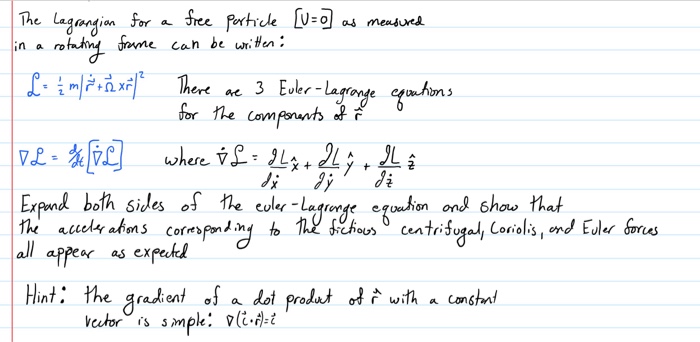 The Lagrangian for a free particle [U=0] as measured
in a rotating frame can be written:
ℒ = ½ m|ṙ⃗ + Ω⃗ x r⃗|² There are 3 Euler-Lagrange equations
for the components of r⃗
∇ℒ = d/dt [∇̇ℒ] where ∇̇ℒ = ∂L/∂ẋ x̂ + ∂L/∂ẏ ŷ + ∂L/∂ż ẑ
Expand both sides of the euler-Lagrange equation and show that
the accelerations corresponding to the fictious centrifugal, Coriolis, and Euler forces
all appear as expected
Hint: the gradient of a dot product of r⃗ with a constant
vector is simple: ∇(c⃗·r⃗)=c⃗